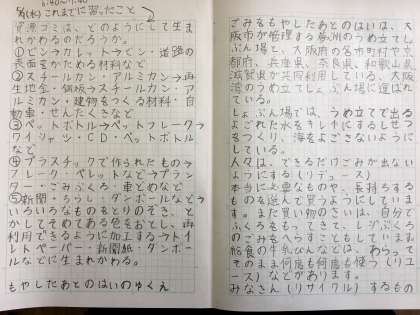 これまでに習ったこと
資源ゴミは、どのようにして生ま
れかわるのだろうか。
①ビン・カレット→ビン・道路の
表面をかためる材料など
②スチールカン・アルミカン→再
生地金・鋼板→スチールカン・ア
ルミカン・建物をつくる材料・自
動車・せんたくきなど
③ペットボトル→ペットフレーク→
Tシャツ・CD・ペットボトル
など
④プラスチックで作られたもの→
フレーク・ペレットなど→プラン
ター・ごみぶくろ・車どめなど
⑤新聞・ちらし・ダンボールなど→
いろいろなものをとりのぞき、と
かしてそめてある色をおとし、再
利用できるように加工する→トイ
レットペーパー・新聞紙・ダンボー
ルなどに生まれかわる。
もやしたあとのはいのゆくえ
ごみをもやしたあとのはいは、大
阪市が管理する舞洲のうめ立てし
ょぶん場と、大阪府の各市町村や京
都府、兵庫県、奈良県、和歌山県、
滋賀県が共同利用している、大阪
湾のうめ立てしょぶん場に運ばれ
ている。
しょぶん場では、うめ立てで出る
よごれた水をきれいにするしせつ
をつくり、海をよごさないように
している。
人々は、できるだけごみが出ない
ようにする(リデュース)
本当に必要なものや、長持ちする
ものを選んで買うようにしていま
す。また買い物のさいは、自分で
ふくろをもってきて、レジぶくろ
のごみをへらすこともしています。
給食の牛乳びんなどは、あらって
そのまま何度も何度も使う(リユ
ース)などがあります。
みなさん(リサイクル)するもの